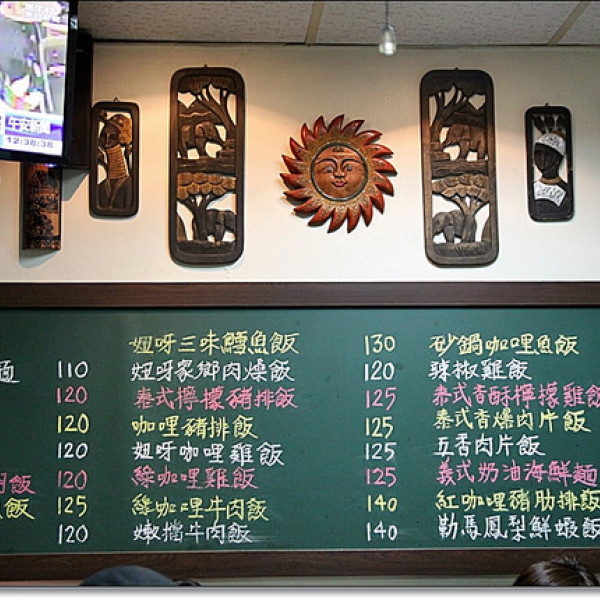 午安新聞
12:38:38
妞呀三味鱈魚飯 130 砂鍋咖哩魚飯
110 妞呀家鄉肉燥飯 120 辣椒雞飯
120 泰式檸檬豬排飯 125 泰式香酥檸檬雞飯
120 咖哩豬排飯 125 泰式香爆肉片飯
120 妞呀咖哩雞飯 125 五香肉片飯
飯 120 綠咖哩雞飯 125 義式奶油海鮮麵
飯 125 綠咖哩牛肉飯 140 紅咖哩豬肋排飯
120 嫩擋牛肉飯 140 勒馬鳳梨鮮蝦飯